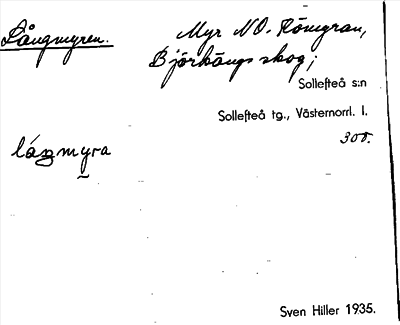 Långmyren.
Myr NO. Röngran,
Björkängs skog;
Sollefteå s:n
Sollefteå tg., Västernorrl. l.
300.
lågmyra
Sven Hiller 1935.